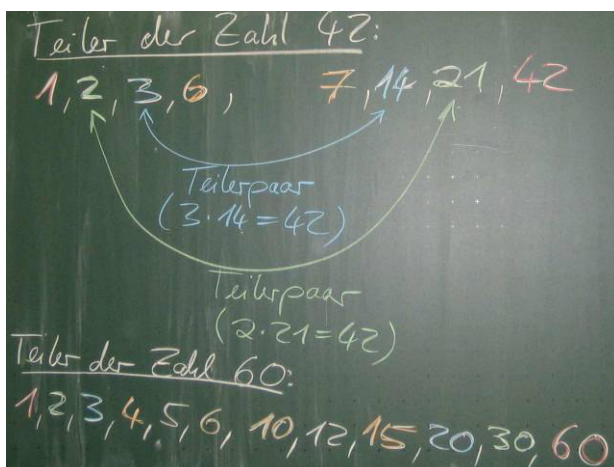 Teiler der Zahl 42:
1, 2, 3, 6, 7, 14, 21, 42
Teilerpaar
(3·14=42)
Teilerpaar
(2·21=42)
Teiler der Zahl 60:
1, 2, 3, 4, 5, 6, 10, 12, 15, 20, 30, 60